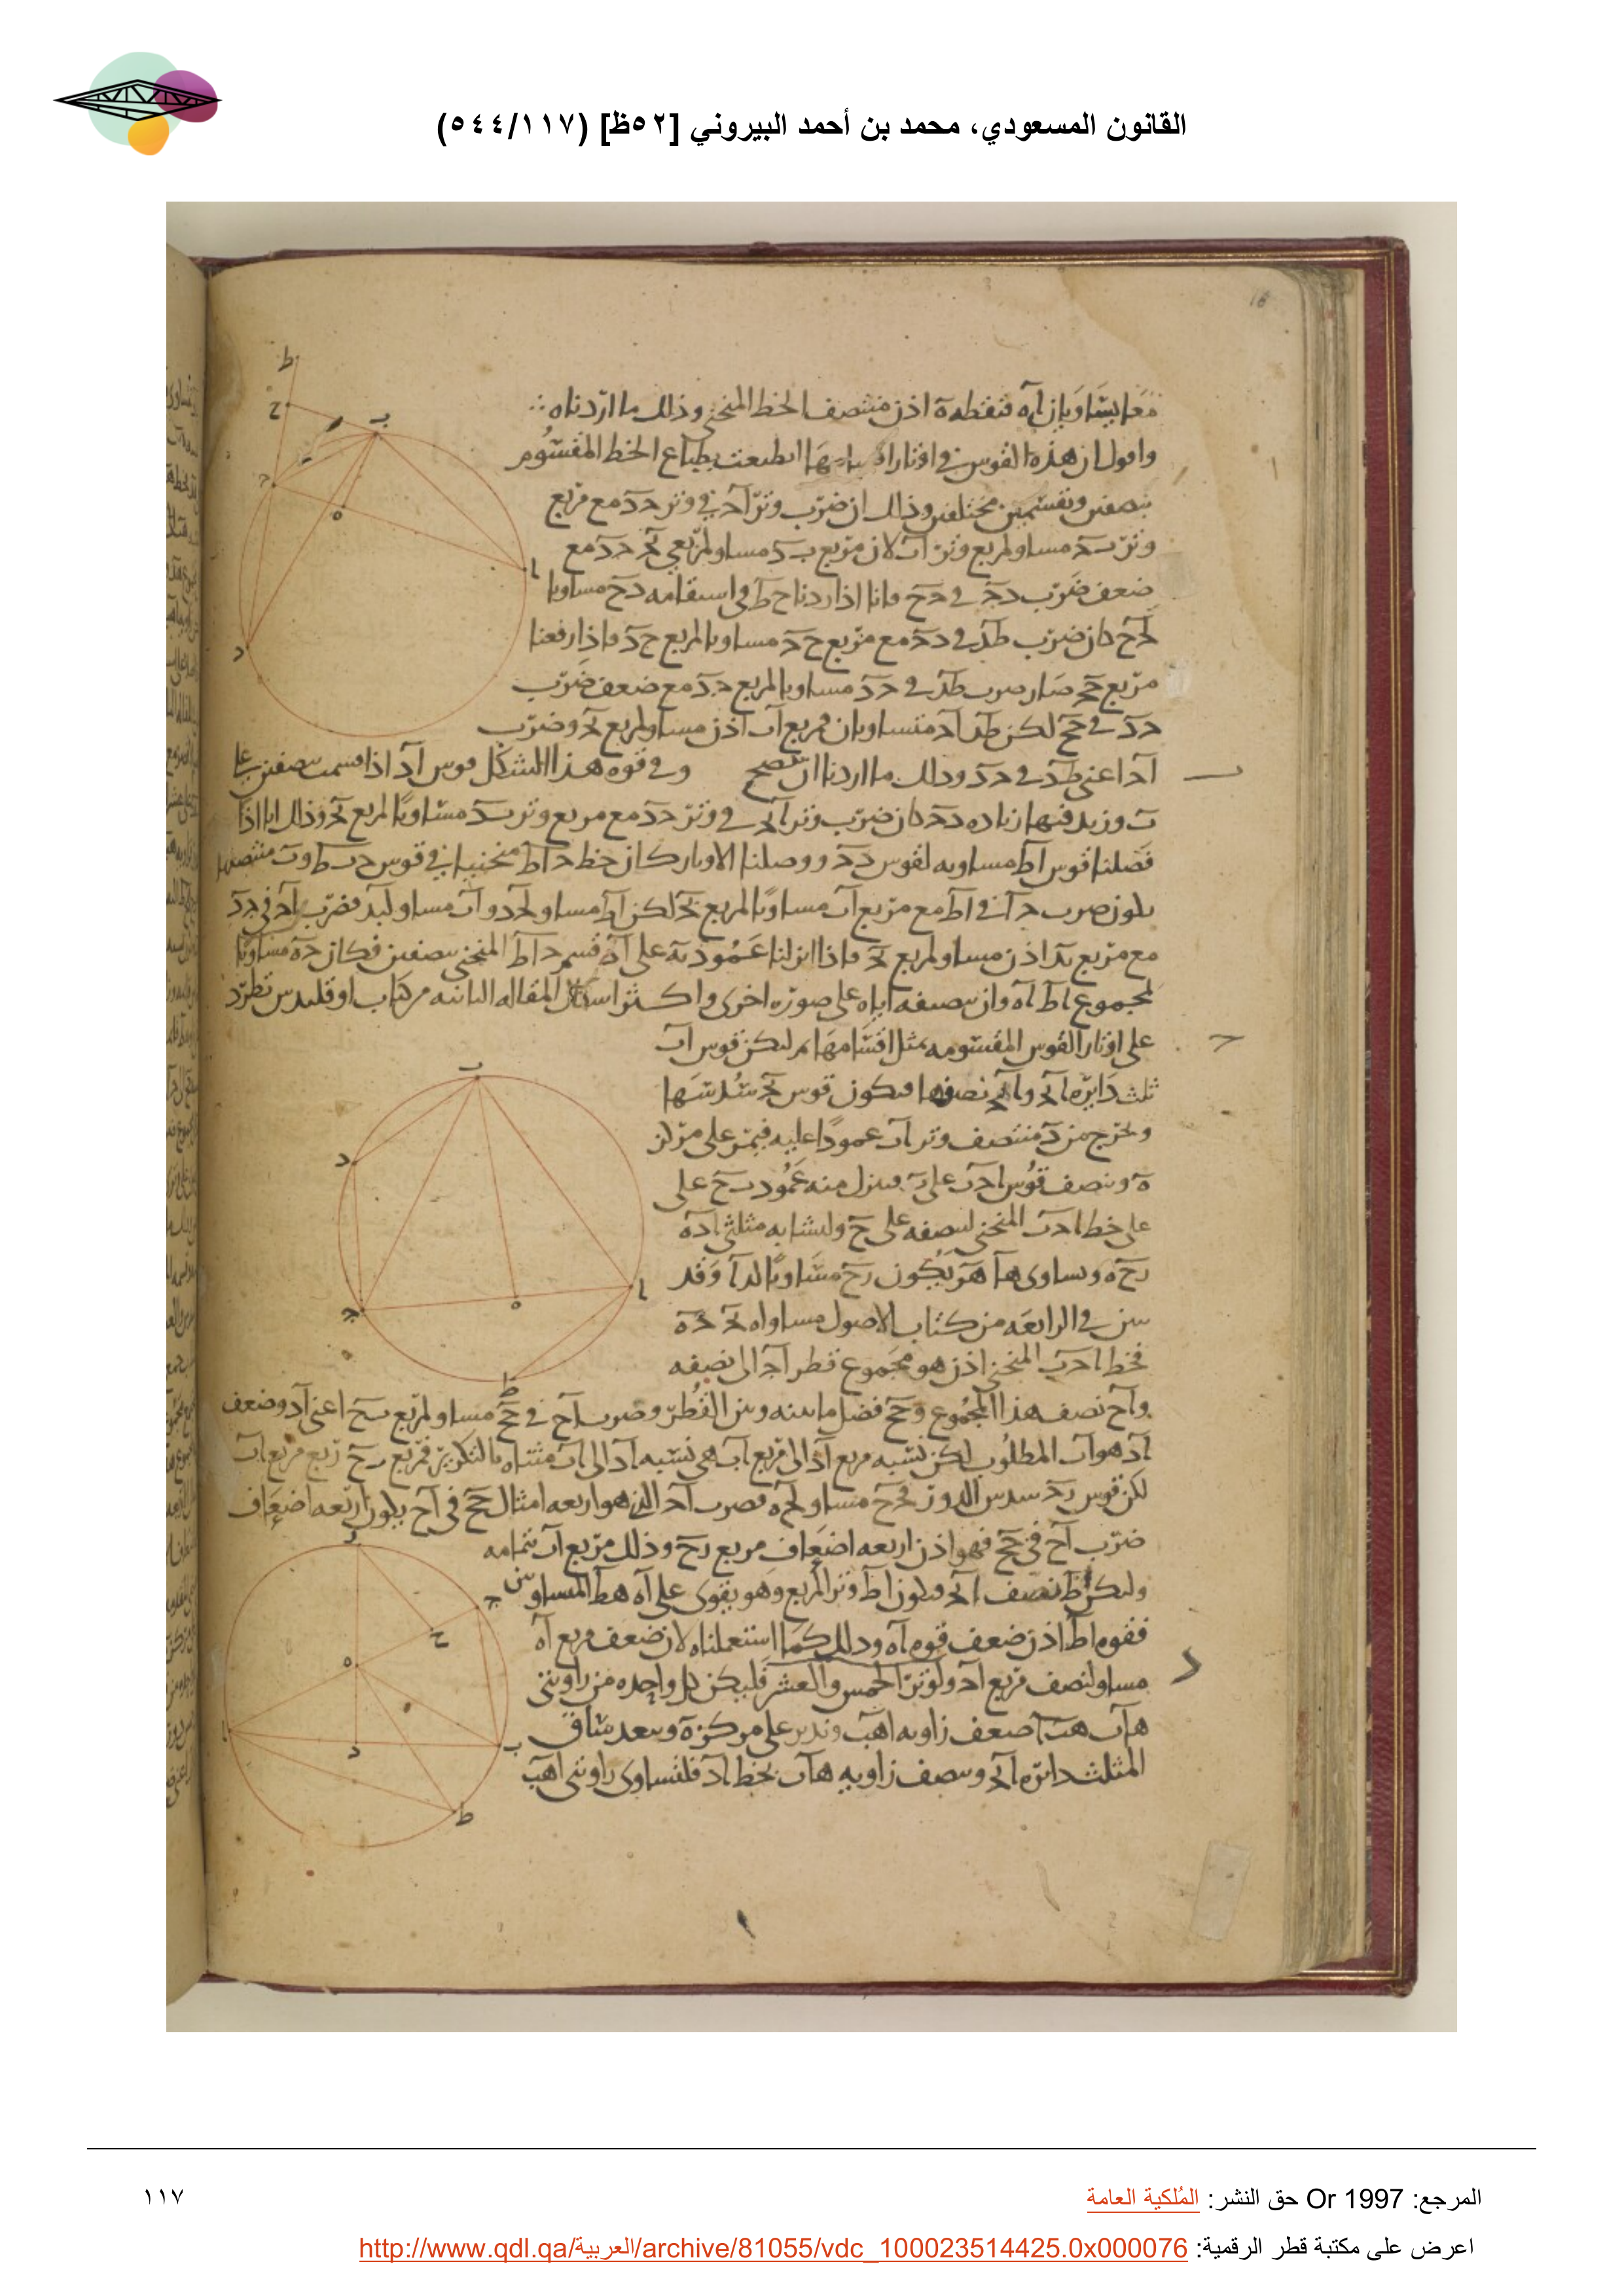 القانون المسعودي، محمد بن أحمد البيروني [٥٢ظ] (٥٤٤/١١٧)
معا يتساويان آه فنقطة ه اذن منتصف الخط المنحني وذلك ما اردناه
واقول ان هذه القوس في اوتار انطبعت بطباع الخط المقسوم
بنصفين وبقسمين مختلفين وذلك ان ضرب وتر آج في وتر جد مع مربع
وتر بج مساو لمربع وتر اب لان مربع بد مساو لمربعي بج جد مع
ضعف ضرب دج في جح فانا اذا زدنا ح ط في استقامه دح مساويا
لدح كان ضرب طج في جد مع مربع حج مساويا لمربع حد فاذا رفعنا
مربع صار ضرب طج في جد مساويا لمربع جد مع ضعف ضرب
جد في جح لكن طج اج متساويان فمربع اب اذن مساو لمربع بج وضرب
اج اعني طج في جد وذلك ما اردنا ان يتضح وفي قوه هذا الشكل قوس آد اذا قسمت بنصفين على
ب وزيد فيها زياده دج كان ضرب وتر اج في وتر جد مع مربع وتر بد مساويا لمربع بج وذلك انا اذا
فصلنا قوس اط مساويه لقوس دج ووصلنا الاوتار كان خط ج اط منحنيا في قوس جب ط وب منتصفها
يكون ضرب جا في اط مع مربع اب مساويا لمربع بج لكن اط مساو لجد و اب مساو لبد فضرب اج في جد
مع مربع بد اذن مساو لمربع بج فاذا انزلنا عمود به على اج قسم ج اط المنحني بنصفين فكان جه مساويا
لمجموع اط اه وان نصفه اياه على صوره اخرى واكثر اشكال المقاله الثانيه من كتاب اوقليدس تطرد
على اوتار القوس المقسومه بمثل اقسامها ثم ليكن قوس اب
ثلث دايره ابج و ابج نصفها فيكون قوس بج سدسها
ونخرج من د منتصف وتر اب عمودا عليه فيمر على مركز
ه وننصف قوس اجب على ز وننزل منه عمود زح على
على خط اجب المنحني لينصفه على ح ولتشابه مثلثي اده
زحه وتساوي ها هز يكون زح مساويا لدا وقد
بين في الرابعه من كتاب الاصول مساواه بج جه
فخط اجب المنحني اذن هو مجموع قطر اج الى نصفه
و اح نصف هذا المجموع و حج فضل ما بينه وبين القطر وضرب اح في حج مساو لمربع زح اعني اد وضعف
اد هو اب المطلوب لكن نسبه مربع اد الى مربع اب هي نسبه اد الى اب مثناه بالتكرير فمربع زح ربع مربع اب
لكن قوس بج سدس الدور
ضرب اح في حج فهو اذن اربعه اضعاف مربع زح وذلك مربع اب بتمامه
وليكن ط نصف ابج فيكون اط وتر المربع وهو يقوى على اه هط المتساويين
فقوه اط اذن ضعف قوه اه وذلك كما استعملناه لان ضعف مربع اه
مساو لنصف مربع اج ولوتر الخمس والعشر فليكن كل واحده من زاويتي
هاب هبا ضعف زاويه اهب وندير على مركز ه وببعد ساق
المثلث دايره ابج وننصف زاويه هاب بخط اد فلتساوي زاويتي اهب
المرجع: Or 1997 حق النشر: المُلكية العامة
١١٧
اعرض على مكتبة قطر الرقمية: http://www.qdl.qa/العربية/archive/81055/vdc_100023514425.0x000076